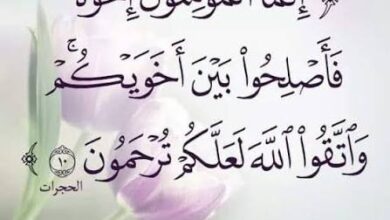 ﴿ إِنَّمَا ٱلۡمُؤۡمِنُونَ إِخۡوَةٞ
فَأَصۡلِحُواْ بَيۡنَ أَخَوَيۡكُمۡۚ
وَٱتَّقُواْ ٱللَّهَ لَعَلَّكُمۡ تُرۡحَمُونَ ١٠ ﴾
الحجرات